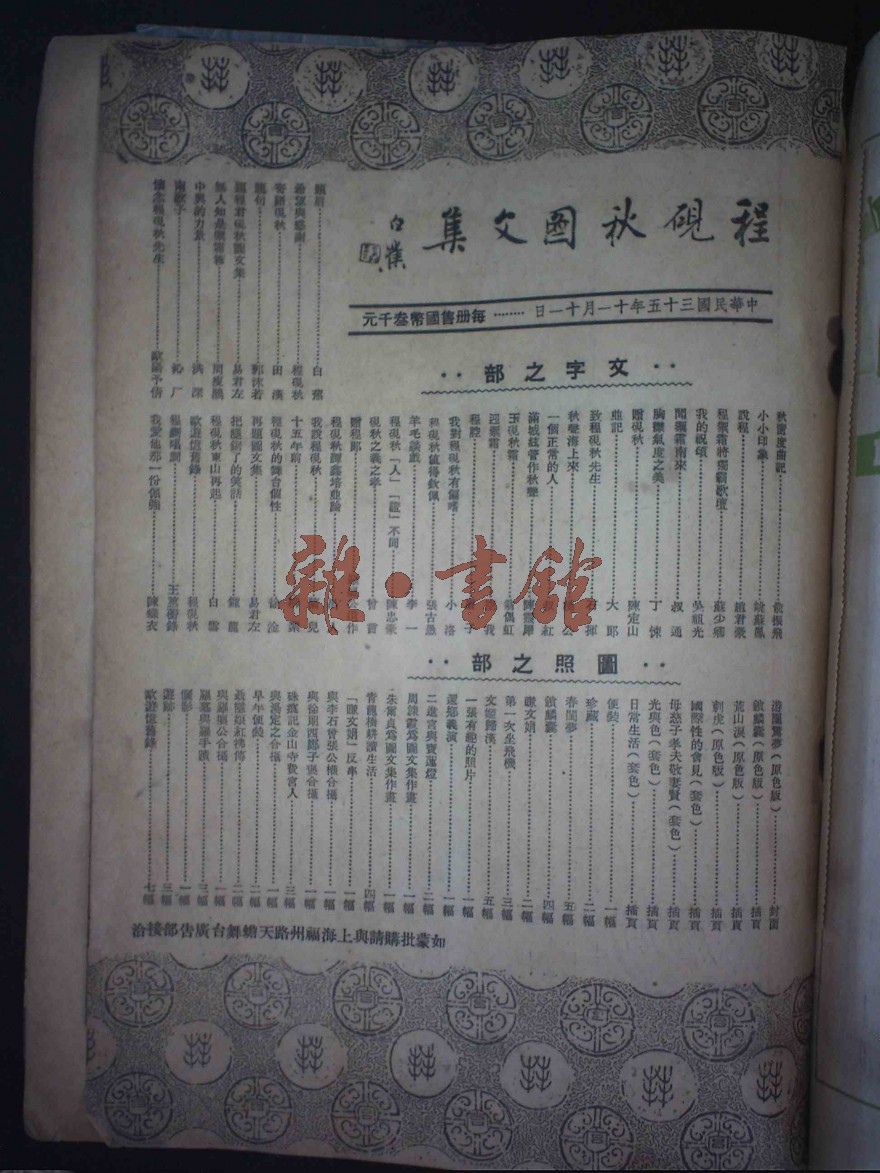 程硯秋圖文集
白蕉
中華民國三十五年十一月十一日………每册售國幣叁千元
‥文字之部‥
題眉………白蕉
希望與感謝………程硯秋
寄語硯秋………田漢
題句………郭沫若
題程君硯秋圖文集………易君左
無人知是御霜簃………周瘦鵑
中興的力量………洪深
南歌子………沁厂
懷念程硯秋先生………歐陽予倩
秋窗度曲記………俞振飛
小小印象………姚蘇鳳
說程………趙君豪
程御霜將獨霸歌壇………蘇少卿
我的祝頌………吳祖光
聞御霜南來………叔通
胸襟氣度之美………丁悚
贈硯秋………陳定山
迎記………大郎
致程硯秋先生………石揮
秋聲海上來
一個正常的人
滿城絃管作秋聲
玉硯秋霜………翁偶虹
迎御霜
程腔
我對程硯秋有偏嗜………小洛
程硯秋值得欽佩………張古愚
羊毛談戲………李一
程硯秋「人」「藝」不同………陳忠豪
硯秋之義之孝………曾言
贈程郎
程硯秋譚鑫培並論
我說程硯秋
十五年前
程硯秋的舞台個性………徐淦
再題圖文集………易君左
把腿銷了的笑話………鍾龍
程硯秋東山再起………白雪
歐遊憶舊錄………程硯秋
程劇唱詞………王蕙蘅錄
我愛他那一份倔強………陳蝶衣
‥圖照之部‥
游園驚夢(原色版)………封面
故麟囊(原色版)………插頁
荒山淚(原色版)………插頁
刺虎(原色版)………插頁
國際性的會見(套色)………插頁
母慈子孝夫敬妻賢(套色)………插頁
光與色(套色)………插頁
日常生活(套色)………插頁
便裝………一幅
珍藏………二幅
春閨夢………五幅
鎖麟囊………四幅
賺文娟………二幅
第一次坐飛機………三幅
文姬歸漢………五幅
一張有趣的照片………一幅
還鄉義演………一幅
二進宮與寶蓮燈………二幅
周鍊霞爲圖文集作畫………一幅
朱爾貞爲圖文集作畫………一幅
靑龍橋耕讀生活………四幅
「賺文娟」反串………一幅
與李石曾張公權合攝………一幅
與徐朗西鄭子褒合攝………一幅
硃痕記金山寺費宮人………三幅
與湯定之合攝………一幅
早年便裝………二幅
聶隱娘紅拂傳………二幅
與羅癭公合攝………一幅
羅墓與羅手蹟………三幅
儷影………一幅
遊跡………三幅
歐遊憶舊錄………七幅
如蒙批購請與上海福州路天蟾舞台廣告部接洽
雜·書館